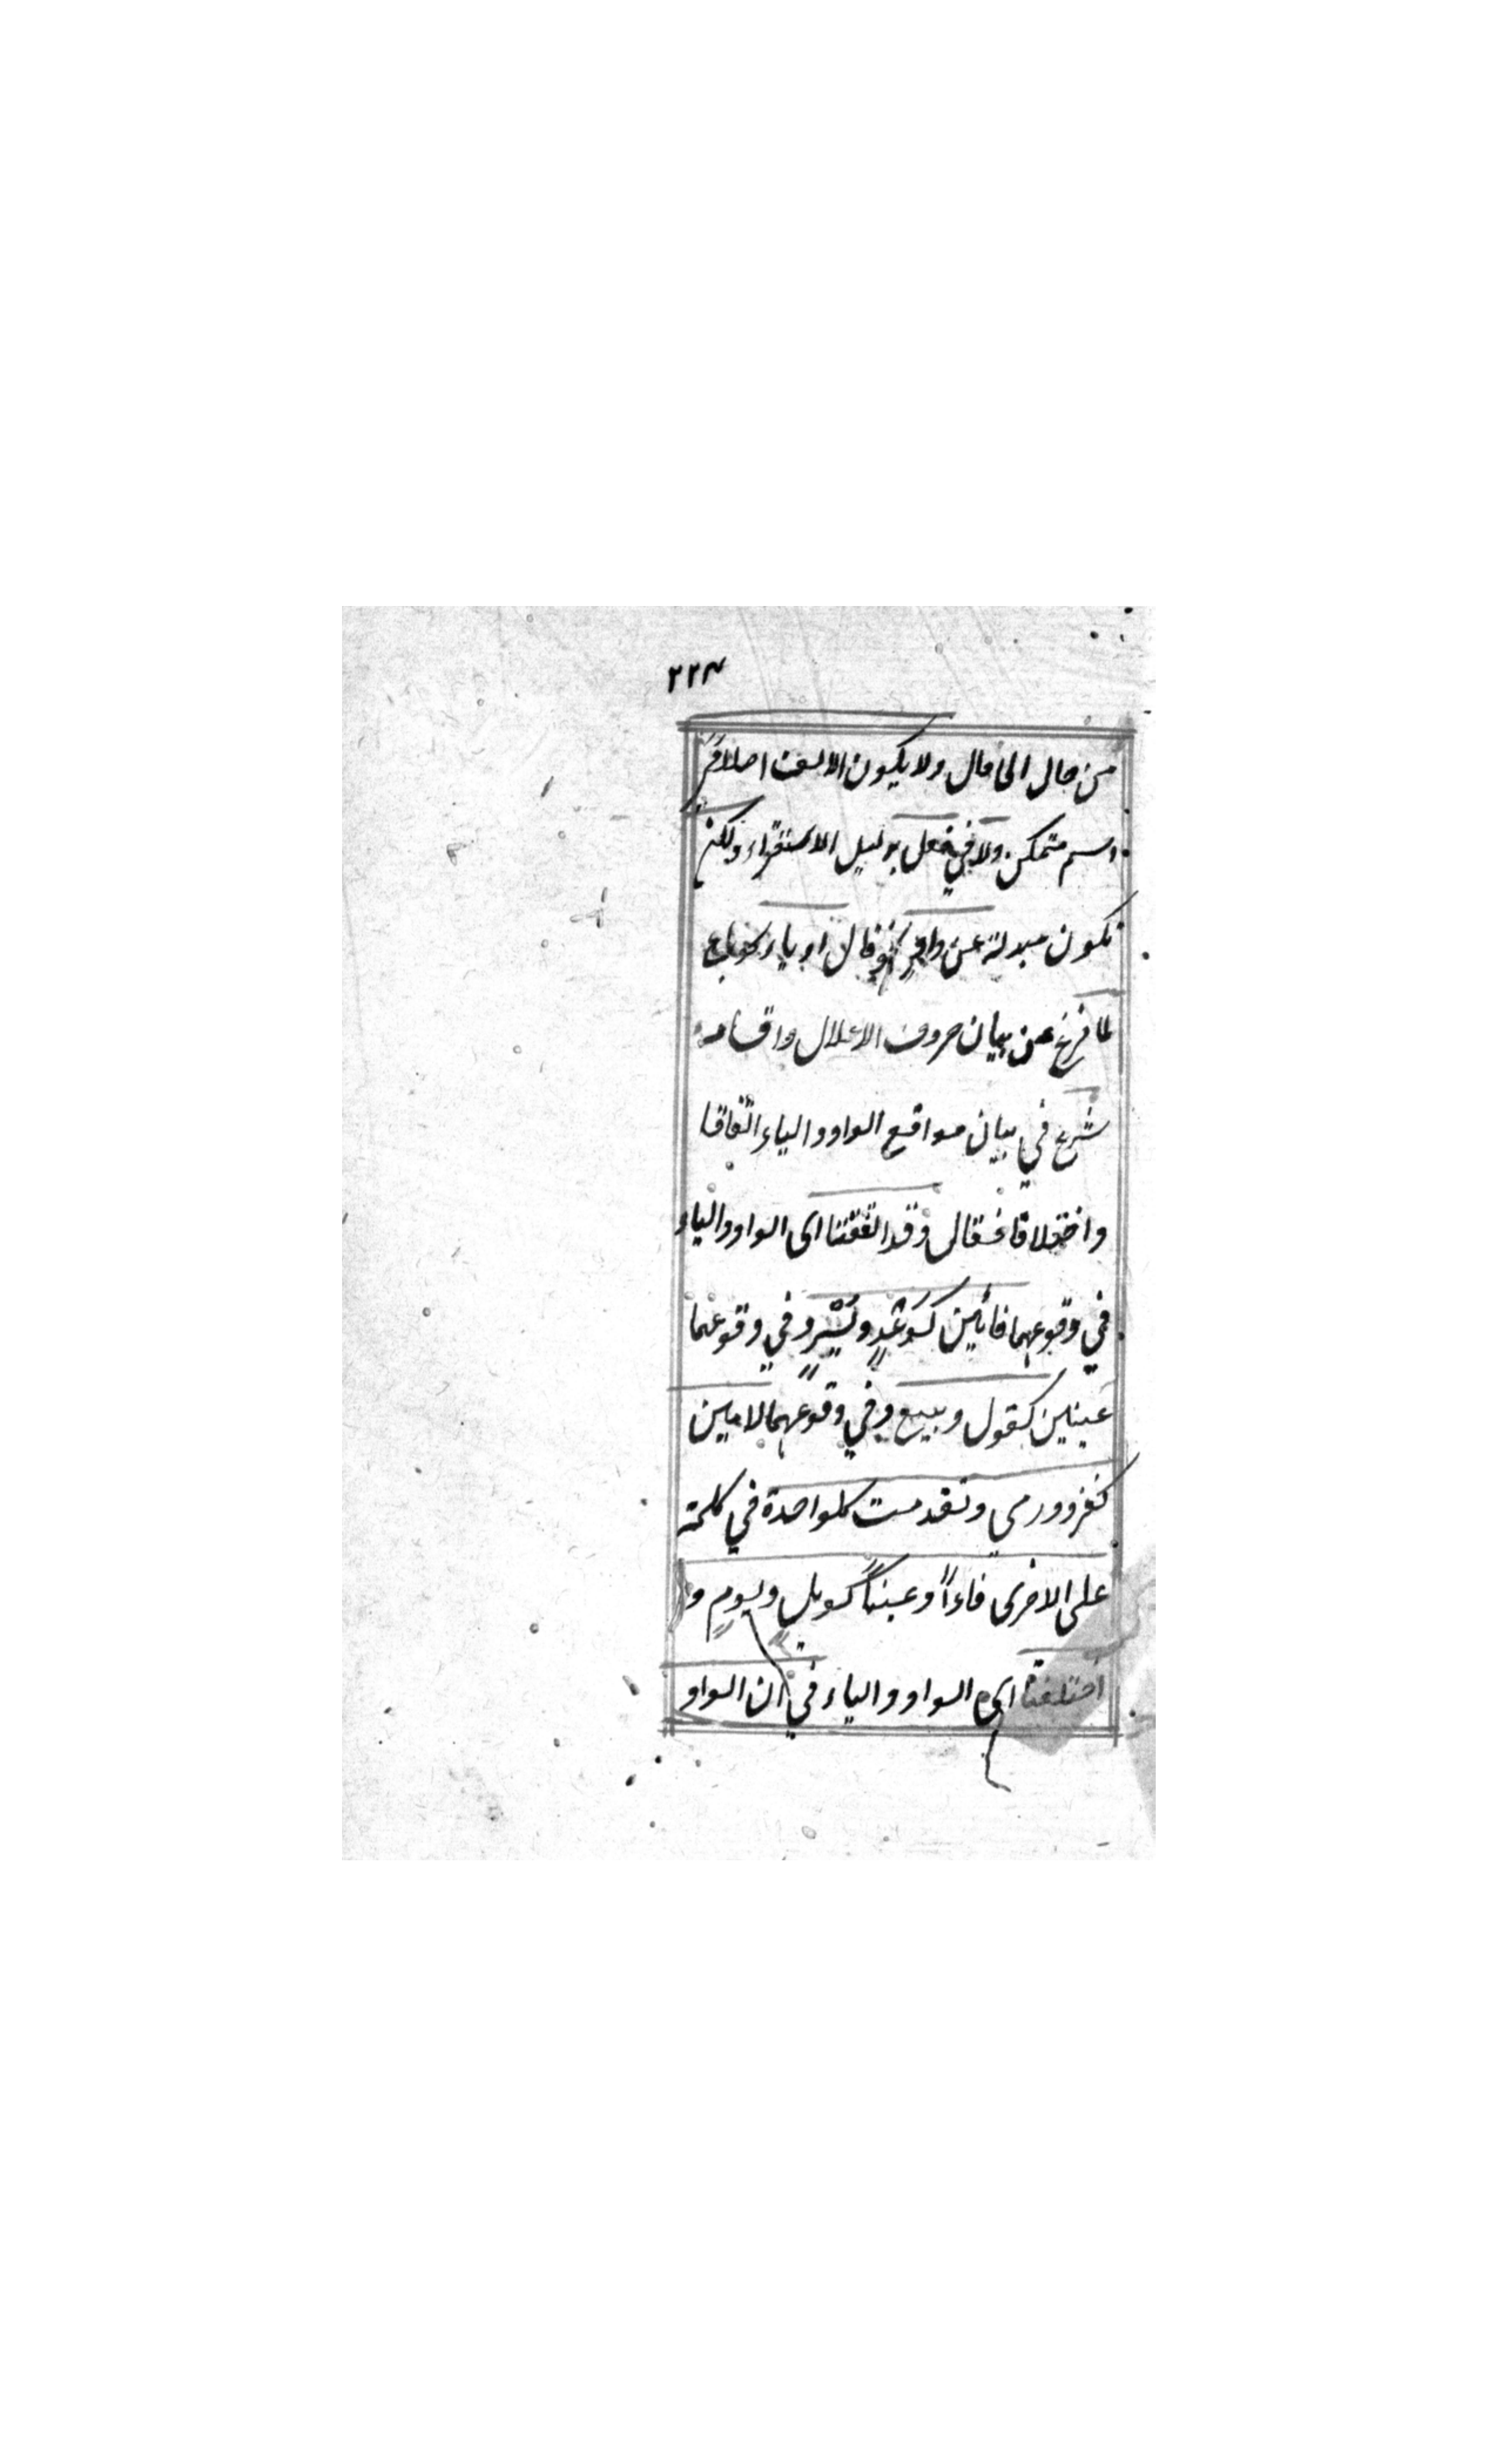 ٢٢٣
من حال الى حال ولا يكون الالف اصلا في
اسم متمكن ولا في فعل بدليل الاستقراء ولكن
تكون مبدلة عن واو نحو قال او ياء نحو باع
لما فرغ عن بيان حروف الاعلال واقسامه
شرع في بيان مواقع الواو والياء اتّفاقا
واختلافا فقال وقد اتفقتا اى الواو والياء
في وقوعهما فائين كَوَعْدٍ ويُسْرٍ وفي وقوعهما
عينين كقول وبيع وفي وقوعهما لامين
كغزو ورمي وتقدمت كلواحدة في كلمة
على الاخرى فاءً وعيناً كويلٍ ويومٍ و
اختلفتا اى الواو والياء في ان الواو